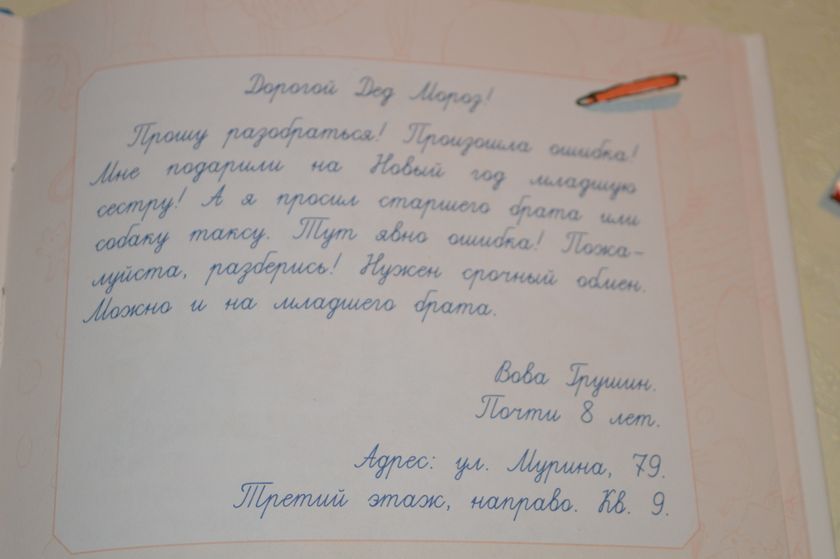 Дорогой Дед Мороз!
Прошу разобраться! Произошла ошибка!
Мне подарили на Новый год младшую
сестру! А я просил старшего брата или
собаку таксу. Тут явно ошибка! Пожа-
луйста, разберись! Нужен срочный обмен.
Можно и на младшего брата.
Вова Грушин.
Почти 8 лет.
Адрес: ул. Мурина, 79.
Третий этаж, направо. Кв. 9.